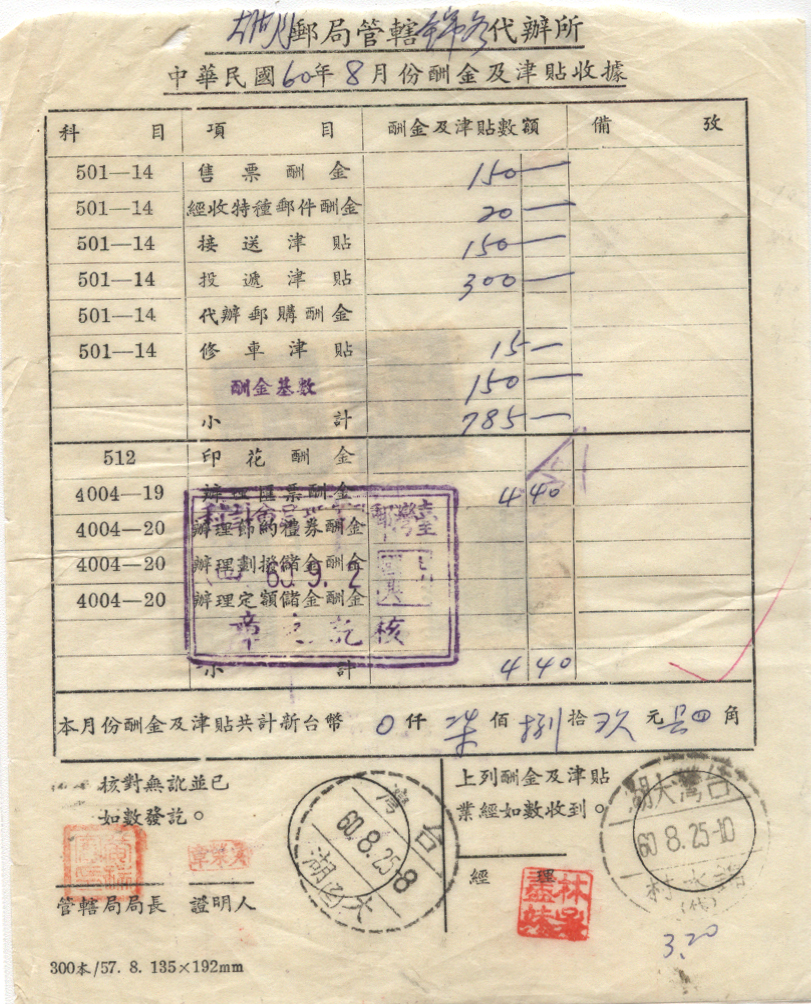 郵局管轄 代辦所
中華民國60年8月份酬金及津貼收據
科目 項目 酬金及津貼數額 備攷
501—14 售票酬金 150—
501—14 經收特種郵件酬金 20—
501—14 接送津貼 150—
501—14 投遞津貼 300—
501—14 代辦郵購酬金
501—14 修車津貼 15—
酬金基數 150—
小計 785—
512 印花酬金
4004—19 辦理匯票酬金 4 40
4004—20 辦理節約禮券酬金
4004—20 辦理劃撥儲金酬金
4004—20 辦理定額儲金酬金
60.9.2
核訖之章
小計 4 40
本月份酬金及津貼共計新台幣 0仟柒佰捌拾玖元 四角
核對無訛並已
如數發訖。
上列酬金及津貼
業經如數收到。
台灣
60.8.25-8
大湖
台灣大湖
60 8.25-10
村
(代)
經理
管轄局局長 證明人
3.20
300本/57. 8. 135×192mm